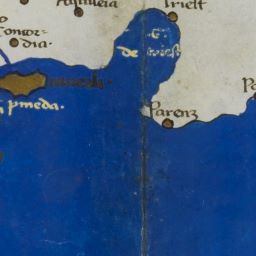 Aquileia
Triest
Concor-
dia.
G.
de triest
pmeda.
Parenz
Pa